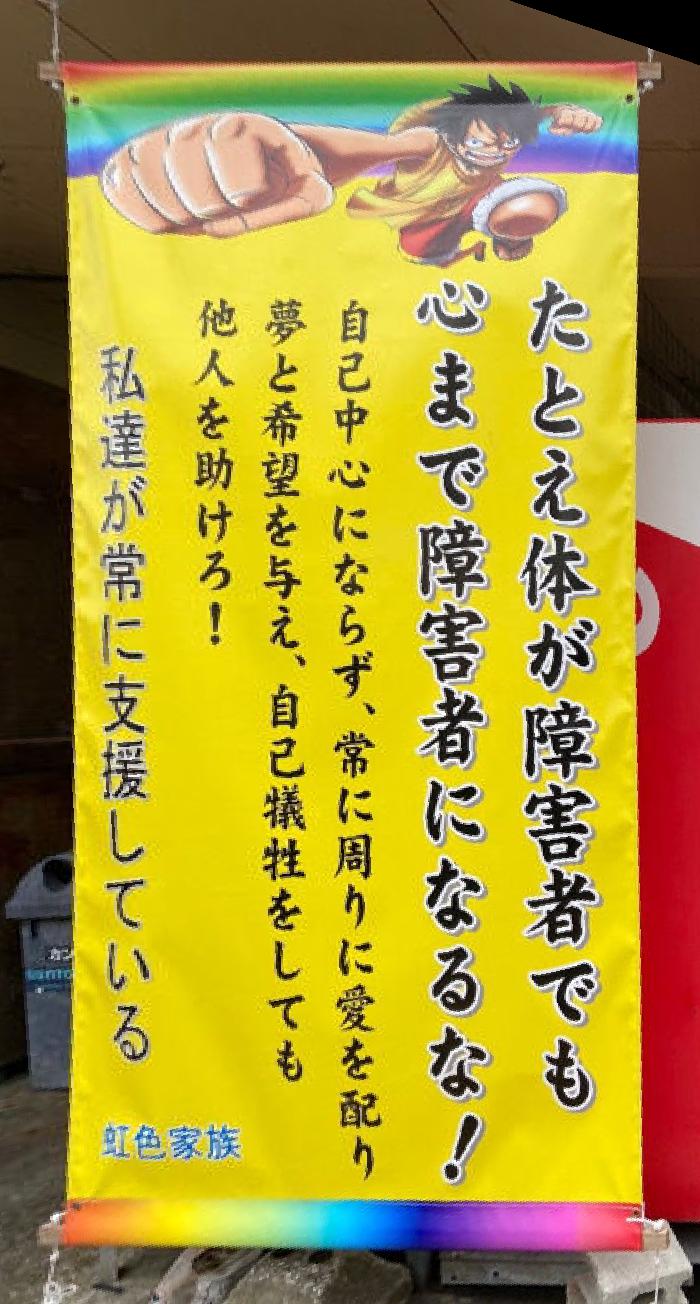 たとえ体が障害者でも
心まで障害者になるな!
自己中心にならず、常に周りに愛を配り
夢と希望を与え、自己犠牲をしても
他人を助けろ!
私達が常に支援している
虹色家族
カン